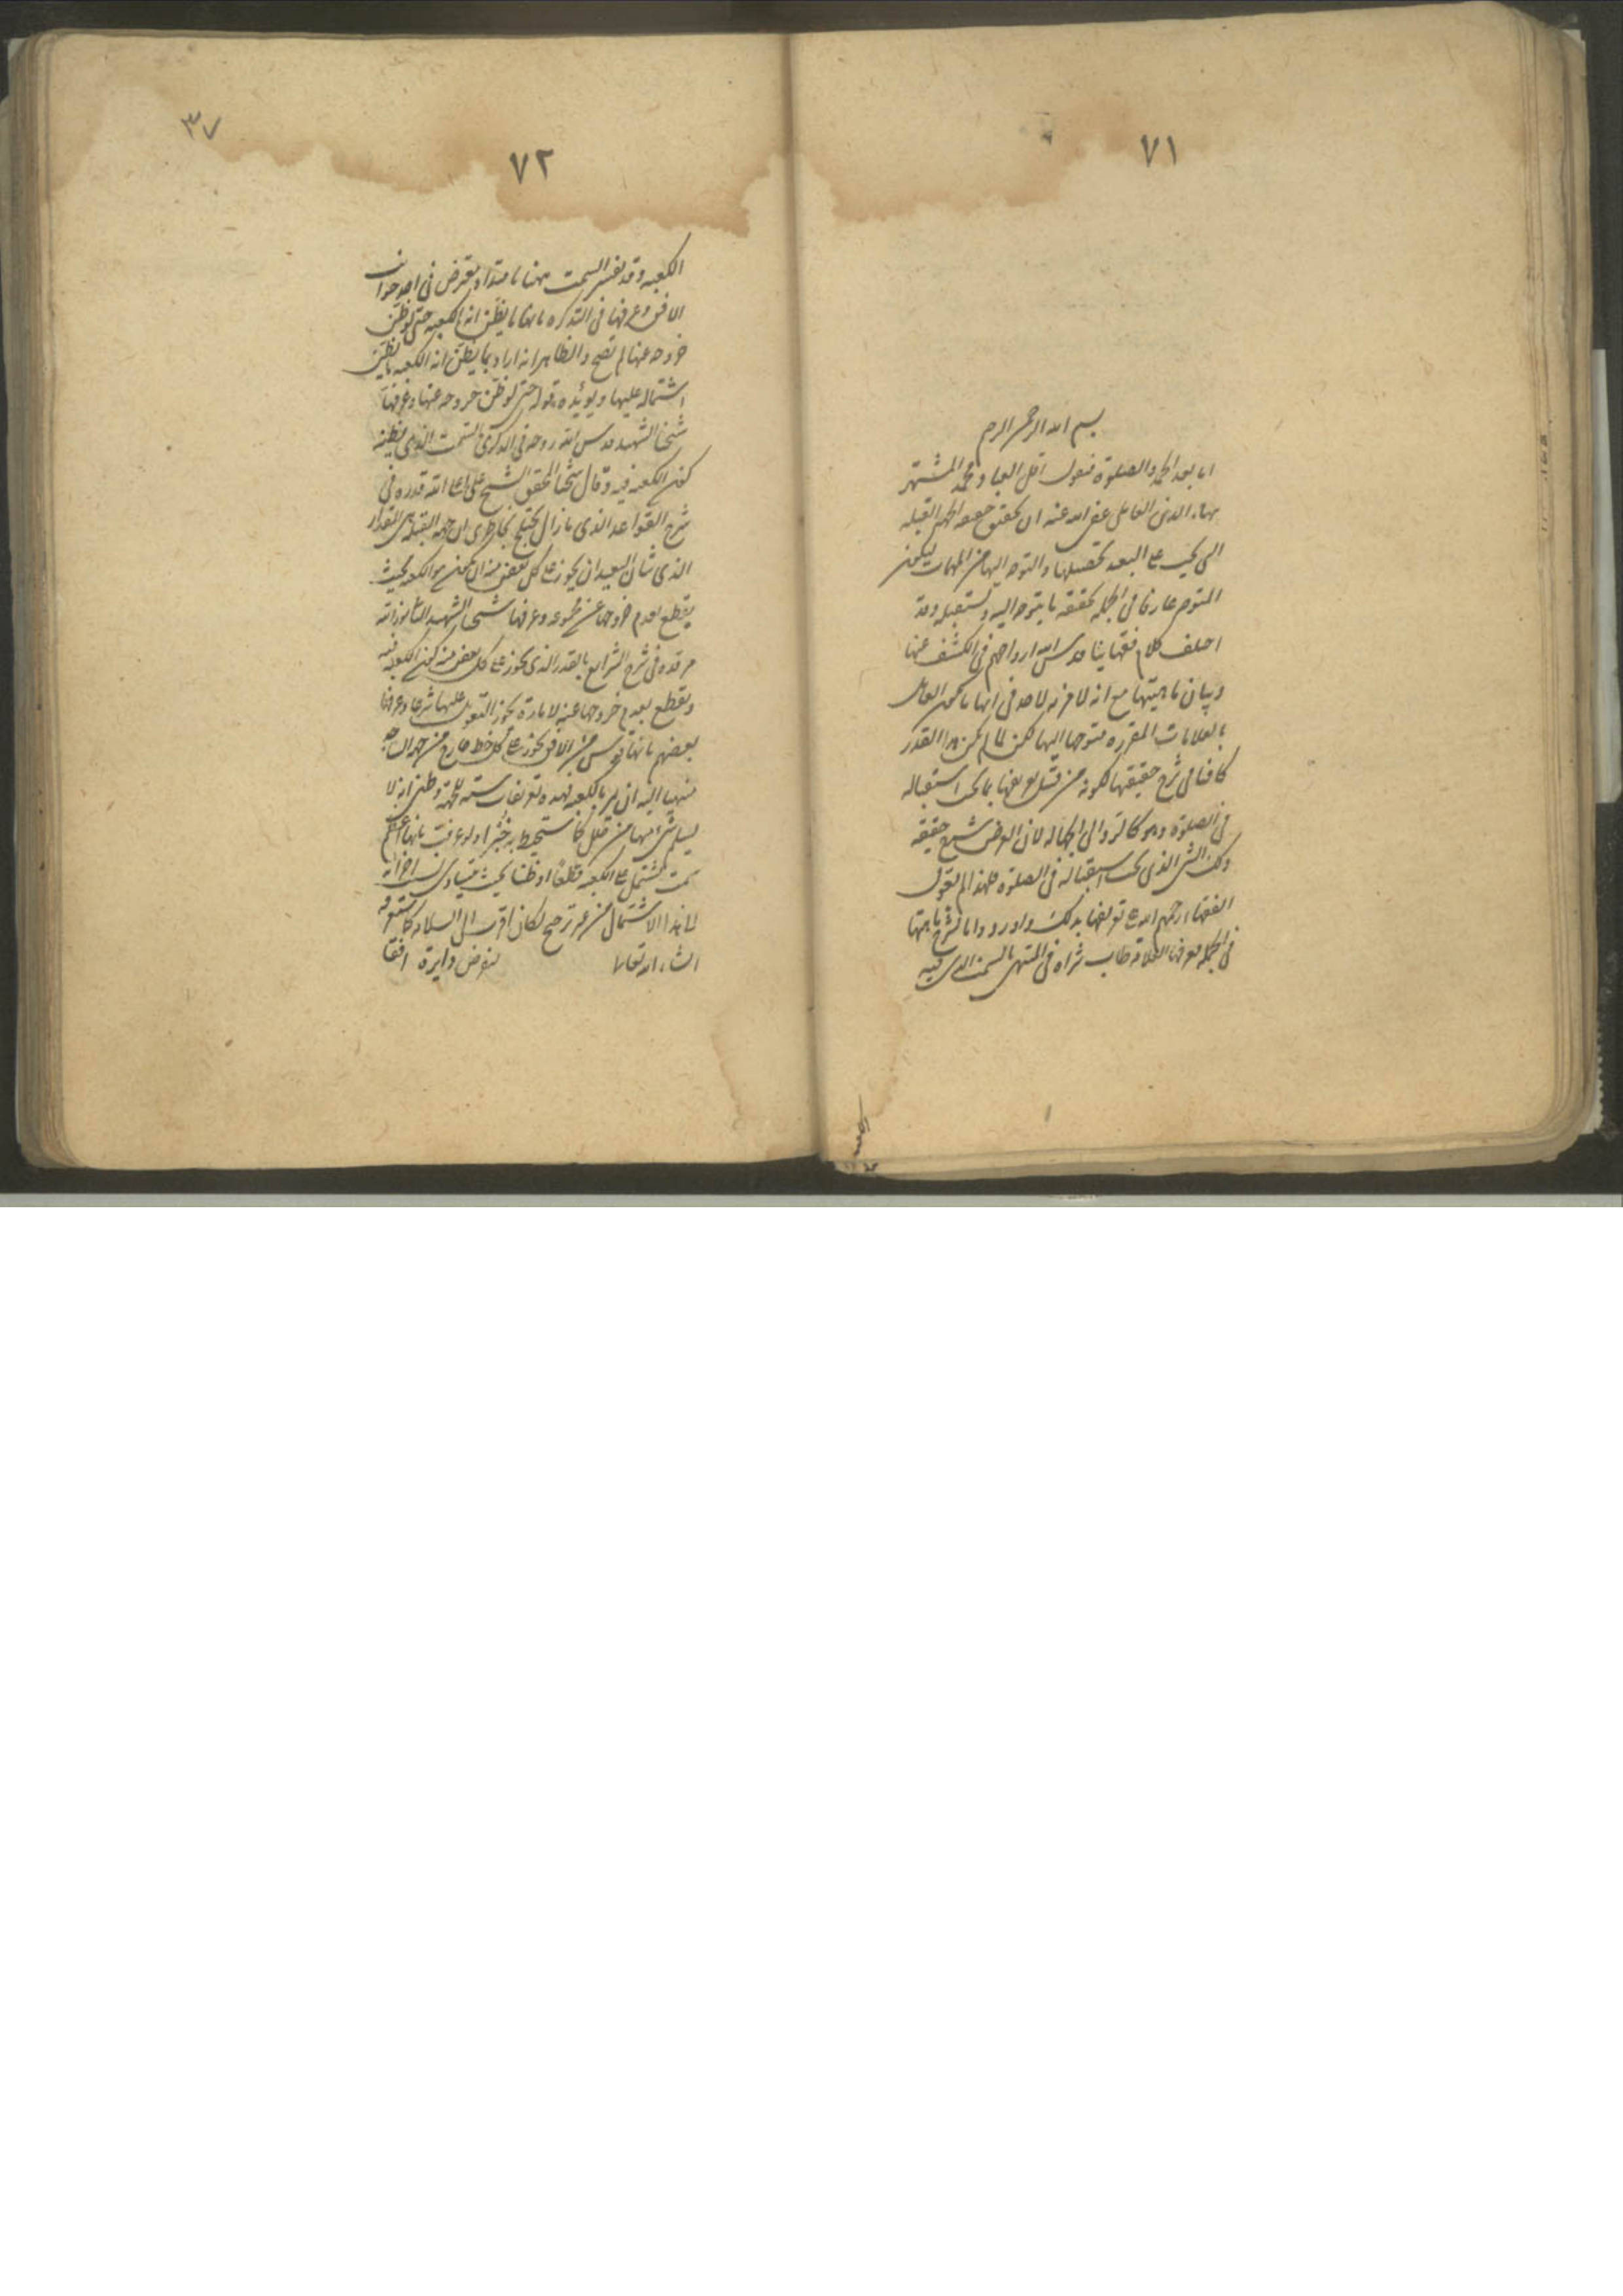 ٧١
بسم الله الرحمن الرحيم
اما بعد الحمد والصلوة فيقول اقل العباد محمد المشتهر
ببهاء الدين العاملى عفى الله عنه ان تحقيق جهة القبلة
التى يجب على البعيد تحصيلها والتوجه اليها من المهمات ليكون
المتوجه عارفا فى الجملة بحقيقة ما يتوجه اليه ويستقبله وقد
اختلف كلام فقهائنا قدس الله ارواحهم فى الكشف عنها
وبيان ماهيتها مع انه لا مرية لاحد فى انها ما يكون العامل
بالعلامات المقررة متوجها اليها لكن لما لم يكن هذا القدر
كافيا فى شرح حقيقتها لكونه من قبيل تعريفها بما يجب استقباله
فى الصلوة وهو كالرد الى الجهالة لان الغرض شرح حقيقة
ذلك الشئ الذى يجب استقباله فى الصلوة فلهذا لم يعول
الفقهاء رحمهم الله على تعريفها بذلك واوردوا ما يشرح ماهيتها
فى الجملة فعرفها العلامة طاب ثراه فى المنتهى بالسمت الذى فيه
الكعبة
٣٧
٧٢
الكعبة وقد يفسر السمت هنا بامتداد يفرض فى احد جوانب
الافق وعرفها فى التذكرة بانها ما يظن انه الكعبة حتى لو ظن
خروجه عنها لم تصح والظاهر انه اراد بما يظن انه الكعبة ما يظن
اشتماله عليها ويؤيده قوله حتى لو ظن خروجه عنها وعرفها
شيخنا الشهيد قدس الله روحه فى الذكرى بالسمت الذى يظن
كون الكعبة فيه وقال شيخنا المحقق الشيخ على اعلى الله قدره فى
شرح القواعد الذى ما زال يختلج بخاطرى ان جهة القبلة هى المقدار
الذى شان البعيد ان يجوز على كل بعض منه ان يكون هو الكعبة بحيث
يقطع بعدم خروجها عن مجموعه وعرفها شيخنا الشهيد الثانى نور الله
مرقده فى شرح الشرايع بالقدر الذى يجوز على كل بعض منه كون الكعبة فيه
ويقطع بعدم خروجها عنه لامارة يجوز التعويل عليها شرعا وعرفها
بعضهم بانها قوس من الافق يجوز على كل خط خارج من جهة الساجد
منتهيا اليه ان يمر بالكعبة فهذه تعريفات ستة للجهة وظنى انه لا
يسلم شئ منها من خلل كما ستحيط به خبرا ولو عرفت بانها اعظم
سمت يشتمل على الكعبة قطعا او ظنا بحيث يتساوى نسبة اجزائه
الى هذا الاشتمال من غير ترجيح لكان اقرب الى السلامة كما ستعرفه
انشاء الله تعالى لنفرض دايرة افقا